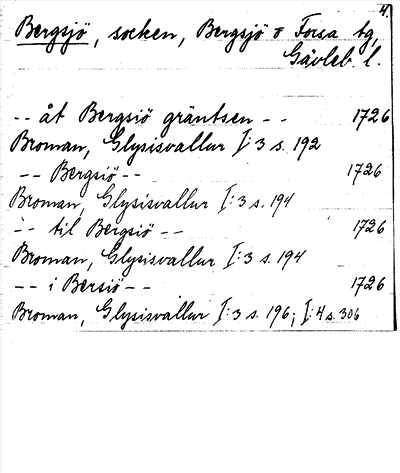 4.
Bergsjö, socken, Bergsjö o Forsa tg,
Gävleb. l.
-- åt Bergsiö gräntsen -- 1726
Broman, Glysisvallur I:3 s. 192
-- Bergsiö -- 1726
Broman, Glysisvallur I:3 s. 194
-- til Bergsiö -- 1726
Broman, Glysisvallur I:3 s. 194
-- i Bersiö -- 1726
Broman, Glysisvallur I:3 s. 196; I:4 s. 306